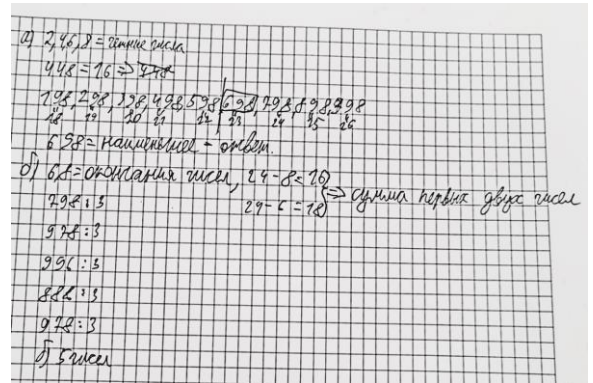 а) 2,4,6,8 = чётные числа
448 = 16 => 448
198, 298, 398, 498, 598, 698, 798, 898, 998
18 19 20 21 22 23 24 25 26
698 = наименьшее - ответ.
б) 6,8 = окончания чисел, 24 - 8 = 16
24 - 6 = 18 => сумма первых двух чисел
798 : 3
978 : 3
996 : 3
888 : 3
978 : 3
б) 5 чисел